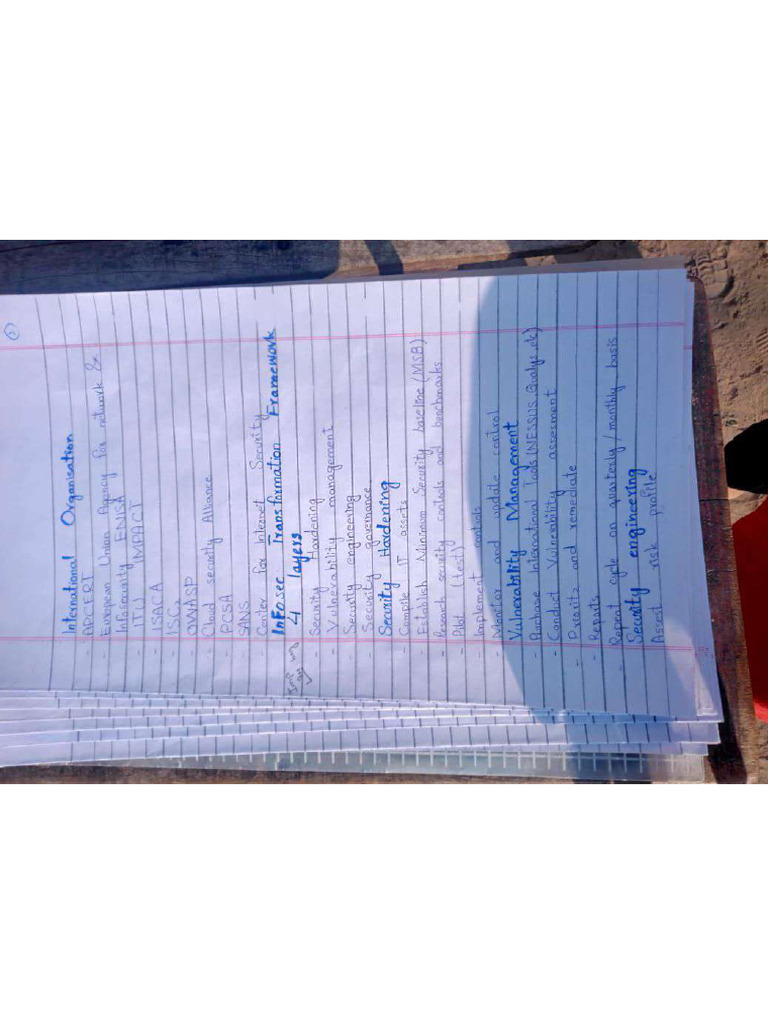 International Organisation
- APCERT
- European Union Agency for network &
Infosecurity ENISA
- ITU IMPACT
- ISACA
- ISC2
- OWASP
- Cloud security Alliance
- PCSA
- SANS
- Center for Internet Security
InFosec Transformation Framework
4 layers
- Security Hardening
- Vulnerability management
- Security engineering
- Security governance
Security Hardening
- Compile IT assets
- Establish Minimum Security baseline (MSB)
- Research security controls and benchmarks
- Pilot (test)
- Implement controls
- Monitor and update control
Vulnerability Management
- Purchase International Tools (NESSUS,
- Conduct Vulnerability assesment
- and remediate
- Reports
- Repeat cycle on quarterly/monthly basis
Security engineering
- Assest risk profile